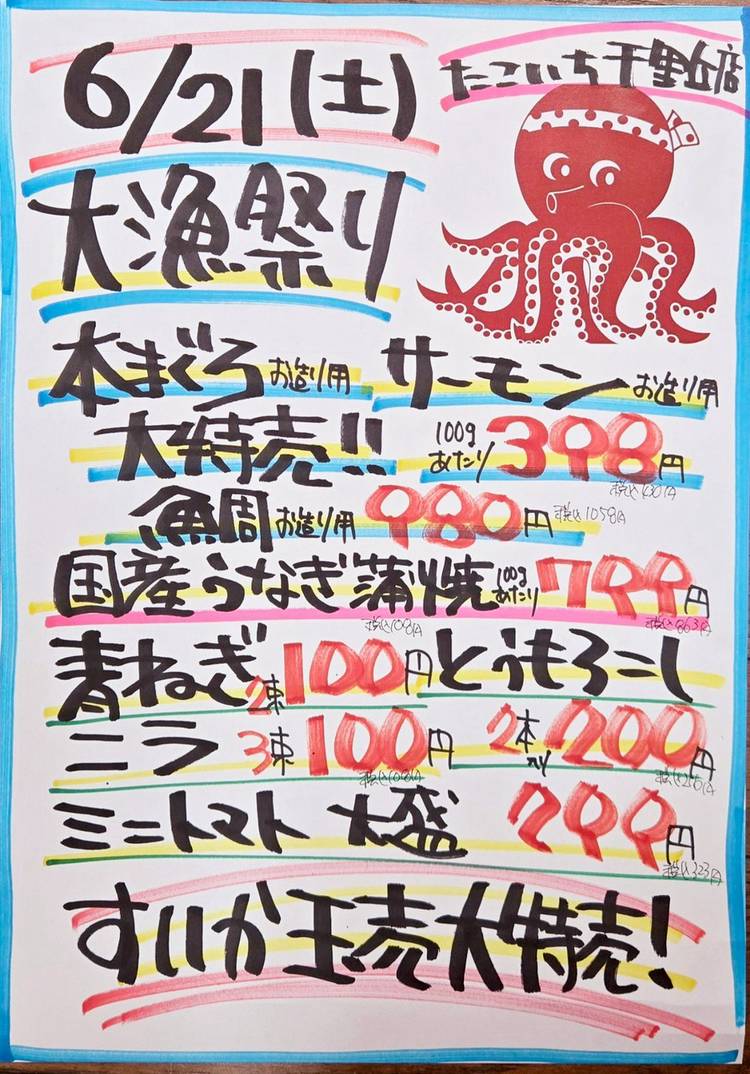 6/21(土)
たこいち千里丘店
大漁祭り
本まぐろ お造り用
大特売!!
サーモン お造り用
100gあたり 398円
税込430円
魚周 お造り用 980円 税込1058円
国産うなぎ蒲焼 100gあたり 799円
税込863円
青ねぎ 2束 100円
税込108円
とうもろこし
2本入り 200円
税込216円
ニラ 3束 100円
税込108円
ミニトマト 大盛 299円
税込323円
すいか玉売大特売!